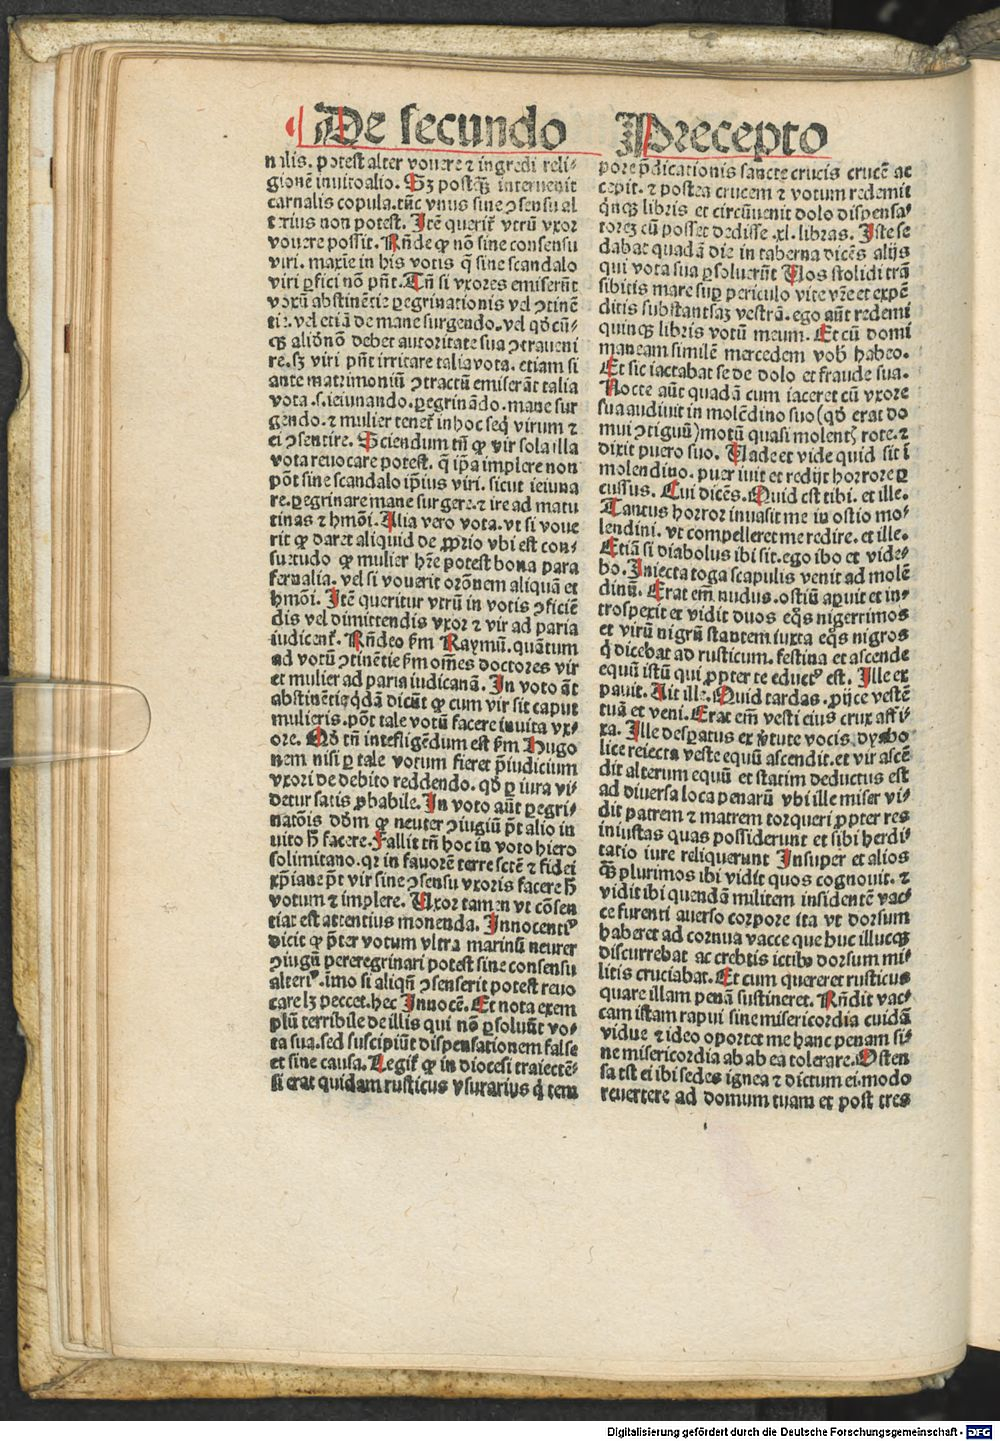 De secundo Precepto
nilis. potest alter vouere ⁊ ingredi reli⸗
gionē inuito alio. Sꝫ postqꝫ interuenit
carnalis copula. tūc vnus sine ꝯsensu al
terius non potest. Itē querit᷑ vtrū vxor
vouere possit. Rn̄de ꝙ nō sine consensu
viri. maxīe in his votis q̄ sine scandalo
viri ꝑfici nō pn̄t. Tn̄ si vxores emiserūt
votū abstinētie ꝑegrinationis vel ꝯtinē
tie. vel etiā de mane surgendo. vel qd̓ cū⸗
qꝫ aliđ nō debet autoritate sua ꝯtraueni
re. sꝫ viri pn̄t irritare talia vota. etiam si
ante matrimoniū ꝯtractū emiserāt talia
vota .s. ieiunando. ꝑegrināđo. mane sur
gendo. ⁊ mulier tenet᷑ in hoc seq̇ virum ⁊
ei ꝯsentire. Sciendum tn̄ ꝙ vir sola illa
vota reuocare potest. q̄ ip̄a implere non
pōt sine scandalo ip̄ius viri. sicut ieiuna
re. ꝑegrinare mane surgere. ⁊ ire ad matu
tinas ⁊ hmōi. Alia vero vota. vt si voue
rit ꝙ daret aliquid de ꝓprio vbi est con⸗
suetudo ꝙ mulier hr̄e potest bona para
fernalia. vel si vouerit orōnem aliquā et
hmōi. Itē queritur vtrū in votis ꝯficiē
dis vel dimittendis vxor ⁊ vir ad paria
iudicent᷑. Rn̄deo ẜm Raymū. quātum
ad votū ꝯtinētie ẜm om̄es doctores vir
et mulier ad paria iudicanā. In voto āt
abstinētie q̇dā dicūt ꝙ cum vir sit caput
mulieris. pōt tale votū facere inuita vx⸗
ore. Qđ tn̄ intelligēdum est ẜm Hugo
nem nisi ꝑ tale votum fieret p̄iudicium
vxori de debito reddendo. qđ ꝑ iura vi⸗
detur satis ꝓbabile. In voto aūt ꝑegri⸗
natōis dōm ꝙ neuter ꝯiugiū p̄t alio in
uito ħ facere. Fallit tn̄ hoc in voto hiero
solimitano. qꝛ in fauorē terre scte ⁊ fidei
xp̄iane p̄t vir sine ꝯsensu vxoris facere ħ
votum ⁊ implere. Uxor tamen vt cōsen
tiat est attentius monenda. Innocentiꝰ
dicit ꝙ p̄ter votum vltra marinū neuter
ꝯiugū pereregrinari potest sine consensu
alteriꝰ. imo si aliqn̄ ꝯsenserit potest reuo
care lꝫ peccet. hec Innocē. Et nota exem
plū terribile de illis qui nō ꝑsoluūt vo⸗
ta sua. sed suscipiūt dispensationem false
et sine causa. Legit᷑ ꝙ in diocesi traiectē⸗
si erat quidam rusticus vsurarius q̇ tem
pore p̄dicationis sancte crucis crucē ac
cepit. ⁊ postea crucem ⁊ votum redemit
q̇nqꝫ libris et circūuenit dolo dispensa⸗
toreꝫ cū posset dedisse .xl. libras. Iste se
dabat quadā die in taberna dicēs alijs
qui vota sua ꝑsoluerūt Vos stolidi trā
sibitis mare sup periculo vite vr̄e et expē
ditis substantiaꝫ vestrā. ego aūt redemi
quinqꝫ libris votū meum. Et cū domi
maneam similē mercedem vob̓ habeo.
Et sic iactabat se de dolo et fraude sua.
Nocte aūt quadā cum iaceret cū vxore
sua audiuit in molēdino suo (qđ erat do
mui ꝯtiguū) motū quasi molentꝭ rote. ⁊
dixit puero suo. Vade et vide quid sit ī
molendino. puer iuit et redijt horrore ꝑ
cussus. Cui dicēs. Quid est tibi. et ille.
Tantus horror inuasit me in ostio mo⸗
lendini. vt compelleret me redire. et ille.
Etiā si diabolus ibi sit. ego ibo et vide⸗
bo. Iniecta toga scapulis venit ad molē
dinū. Erat em̄ nudus. ostiū aperuit et in⸗
trospexit et vidit duos eq̇s nigerrimos
et virū nigrū stantem iuxta eq̇s nigros
q̇ dicebat ad rusticum. festina et ascende
equū istū qui ꝓpter te eductꝰ est. Ille ex
pauit. Ait ille. Quid tardas. ꝓijce vestē
tuā et veni. Erat em̄ vesti eius crux affi⸗
xa. Ille desꝑatus ex v̓tute vocis dyabo
lice reiecta veste equū ascendit. et vir ascē
dit alterum equū et statim deductus est
ad diuersa loca penarū vbi ille miser vi⸗
dit patrem ⁊ matrem torqueri ꝓpter res
iniustas quas possiderunt et sibi herdi⸗
tatio iure reliquerunt Insuper et alios
qꝫ plurimos ibi vidit quos cognouit. ⁊
vidit ibi quendā militem insidentē vac⸗
ce furenti auerso corpore ita vt dorsum
haberet ad cornua vacce que huc illucqꝫ
discurrebat ac crebris ictibꝰ dorsum mi⸗
litis cruciabat. Et cum quereret rusticus
quare illam penā sustineret. Rn̄dit vac⸗
cam istam rapui sine misericordia cuidā
vidue ⁊ ideo oportet me hanc penam si⸗
ne misericordia ab ab ea tolerare. Osten
sa est ei ibi sedes ignea ⁊ dictum ei. modo
reuertere ad domum tuam et post tres
Digitalisierung gefördert durch die Deutsche Forschungsgemeinschaft - DFG